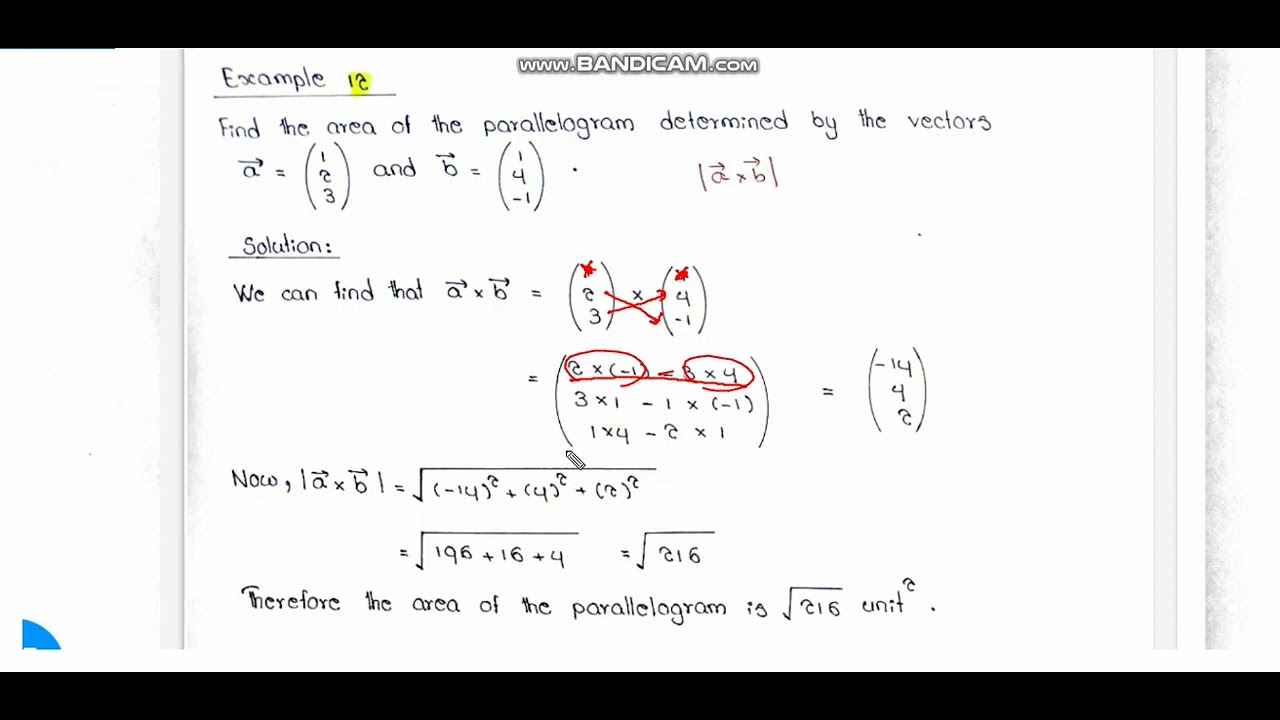 www.BANDICAM.com
Example 12
Find the area of the parallelogram determined by the vectors
a⃗ = (1 2 3) and b⃗ = (1 4 -1) . |a⃗ × b⃗|
Solution:
We can find that a⃗ × b⃗ = (2 3) × (4 -1)
= (2 × (-1) - 3 × 4
3 × 1 - 1 × (-1)
1 × 4 - 2 × 1) = (-14 4 2)
Now, |a⃗ × b⃗| = √((-14)² + (4)² + (2)²)
= √(196 + 16 + 4) = √216
Therefore the area of the parallelogram is √216 unit² .